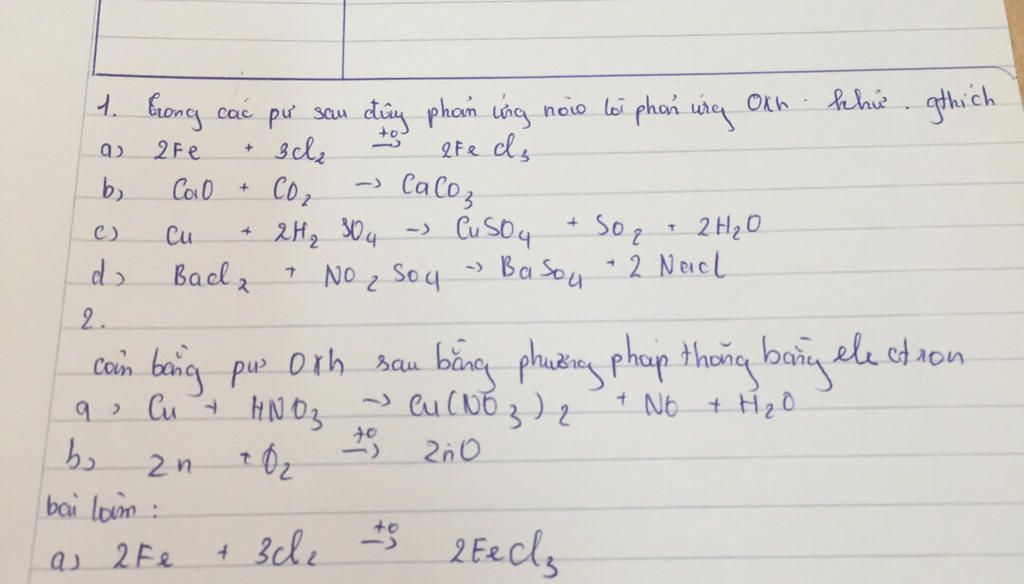 1. trong các pư sau đây phản ứng nào là phản ứng oxh - khử. gthích
a) 2Fe + 3Cl₂ →(t⁰) 2FeCl₃
b) CaO + CO₂ → CaCO₃
c) Cu + 2H₂SO₄ → CuSO₄ + SO₂ + 2H₂O
d) BaCl₂ + Na₂SO₄ → BaSO₄ + 2NaCl
2.
cân bằng pư oxh sau bằng phương pháp thăng bằng electron
a) Cu + HNO₃ → Cu(NO₃)₂ + NO + H₂O
b) Zn + O₂ →(t⁰) ZnO
bài làm :
a) 2Fe + 3Cl₂ →(t⁰) 2FeCl₃